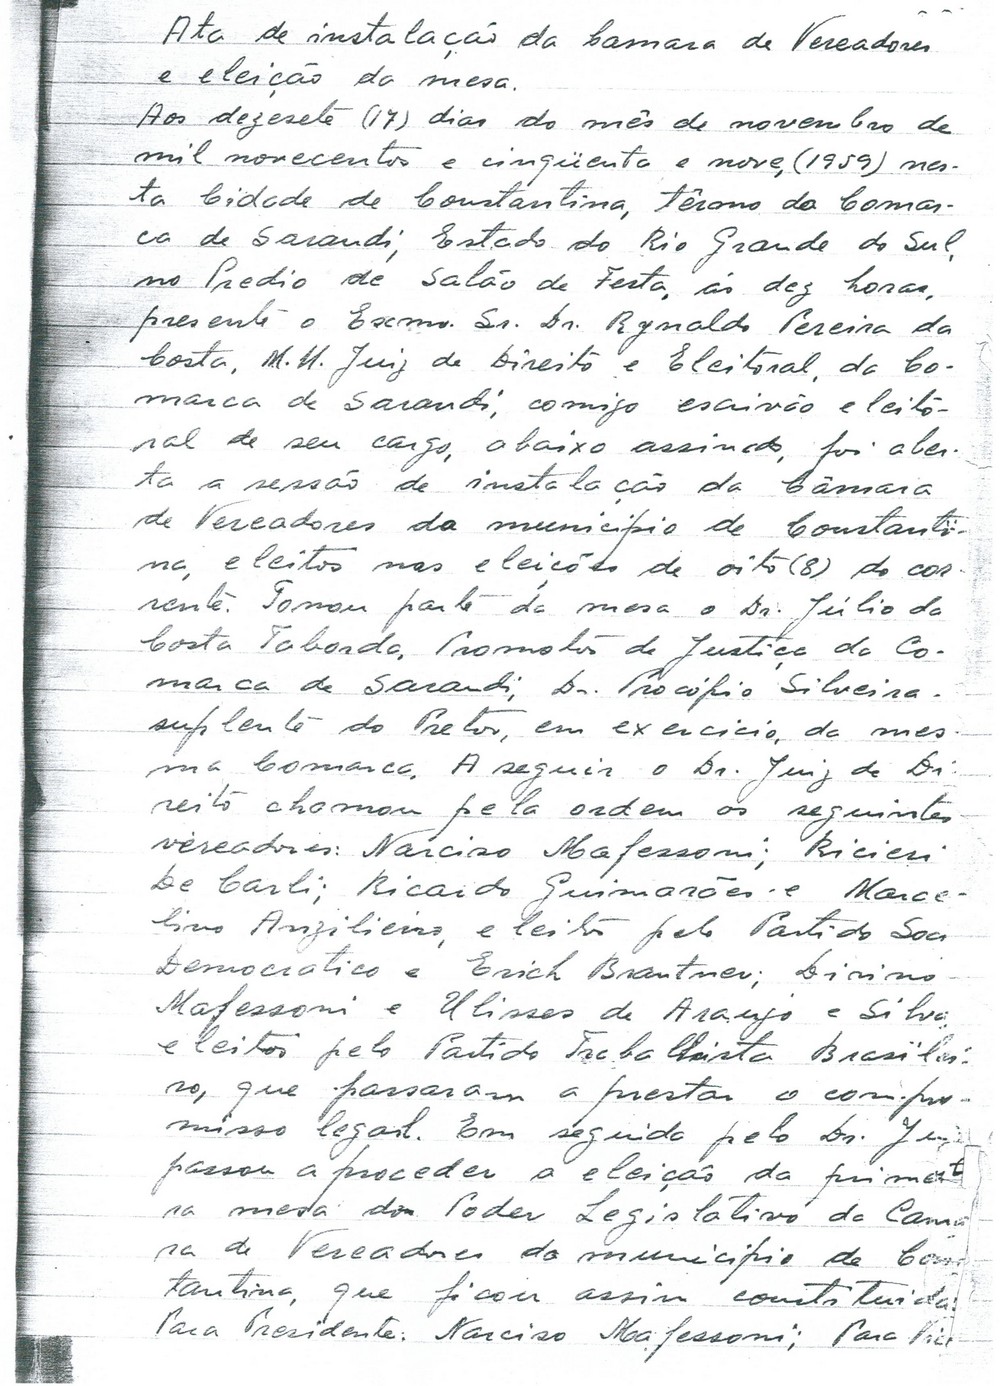 Ata de instalação da Camara de Vereadores
e eleição da mesa.
Aos dezesete (17) dias do mês de novembro de
mil novecentos e cinqüenta e nove, (1959) nes-
ta Cidade de Constantina, têrmo da Comar-
ca de Sarandi, Estado do Rio Grande do Sul,
no Predio de Salão de Festa, ás dez horas,
presente o Exmo. Sr. Dr. Rynaldo Pereira da
Costa, M.M. Juiz de Direito e Eleitoral, da Co-
marca de Sarandi, comigo escrivão eleito-
ral de seu cargo, abaixo assinado, foi aber-
ta a sessão de instalação da Câmara
de Vereadores do municipio de Constanti-
na, eleitos nas eleições de oito (8) do cor-
rente. Tomou parte da mesa o Dr. Júlio da
Costa Taborda, Promotor de Justiça da Co-
marca de Sarandi, Dr. Procópio Silveira-
suplente do Pretor, em exercicio, da mes-
ma Comarca. A seguir o Dr. Juiz de Di-
reito chamou pela ordem os seguintes
vereadores: Narciso Mafessoni; Ricieri
De Carli; Ricardo Guimarães e Marce-
lino Anzilieiro, eleitos pelo Partido Soci
Democratico e Erich Brantner; Divino
Mafessoni e Ulisses de Araujo e Silva,
eleitos pelo Partido Trabalhista Brasilei-
ro, que passaram a prestar o compro-
misso legal. Em seguida pelo Dr. Juiz
passou a proceder a eleição da primei
ra mesa do Poder Legislativo da Cama
ra de Vereadores do municipio de Cons
tantina, que ficou assim constituida:
Para Presidente: Narciso Mafessoni; Para Vice